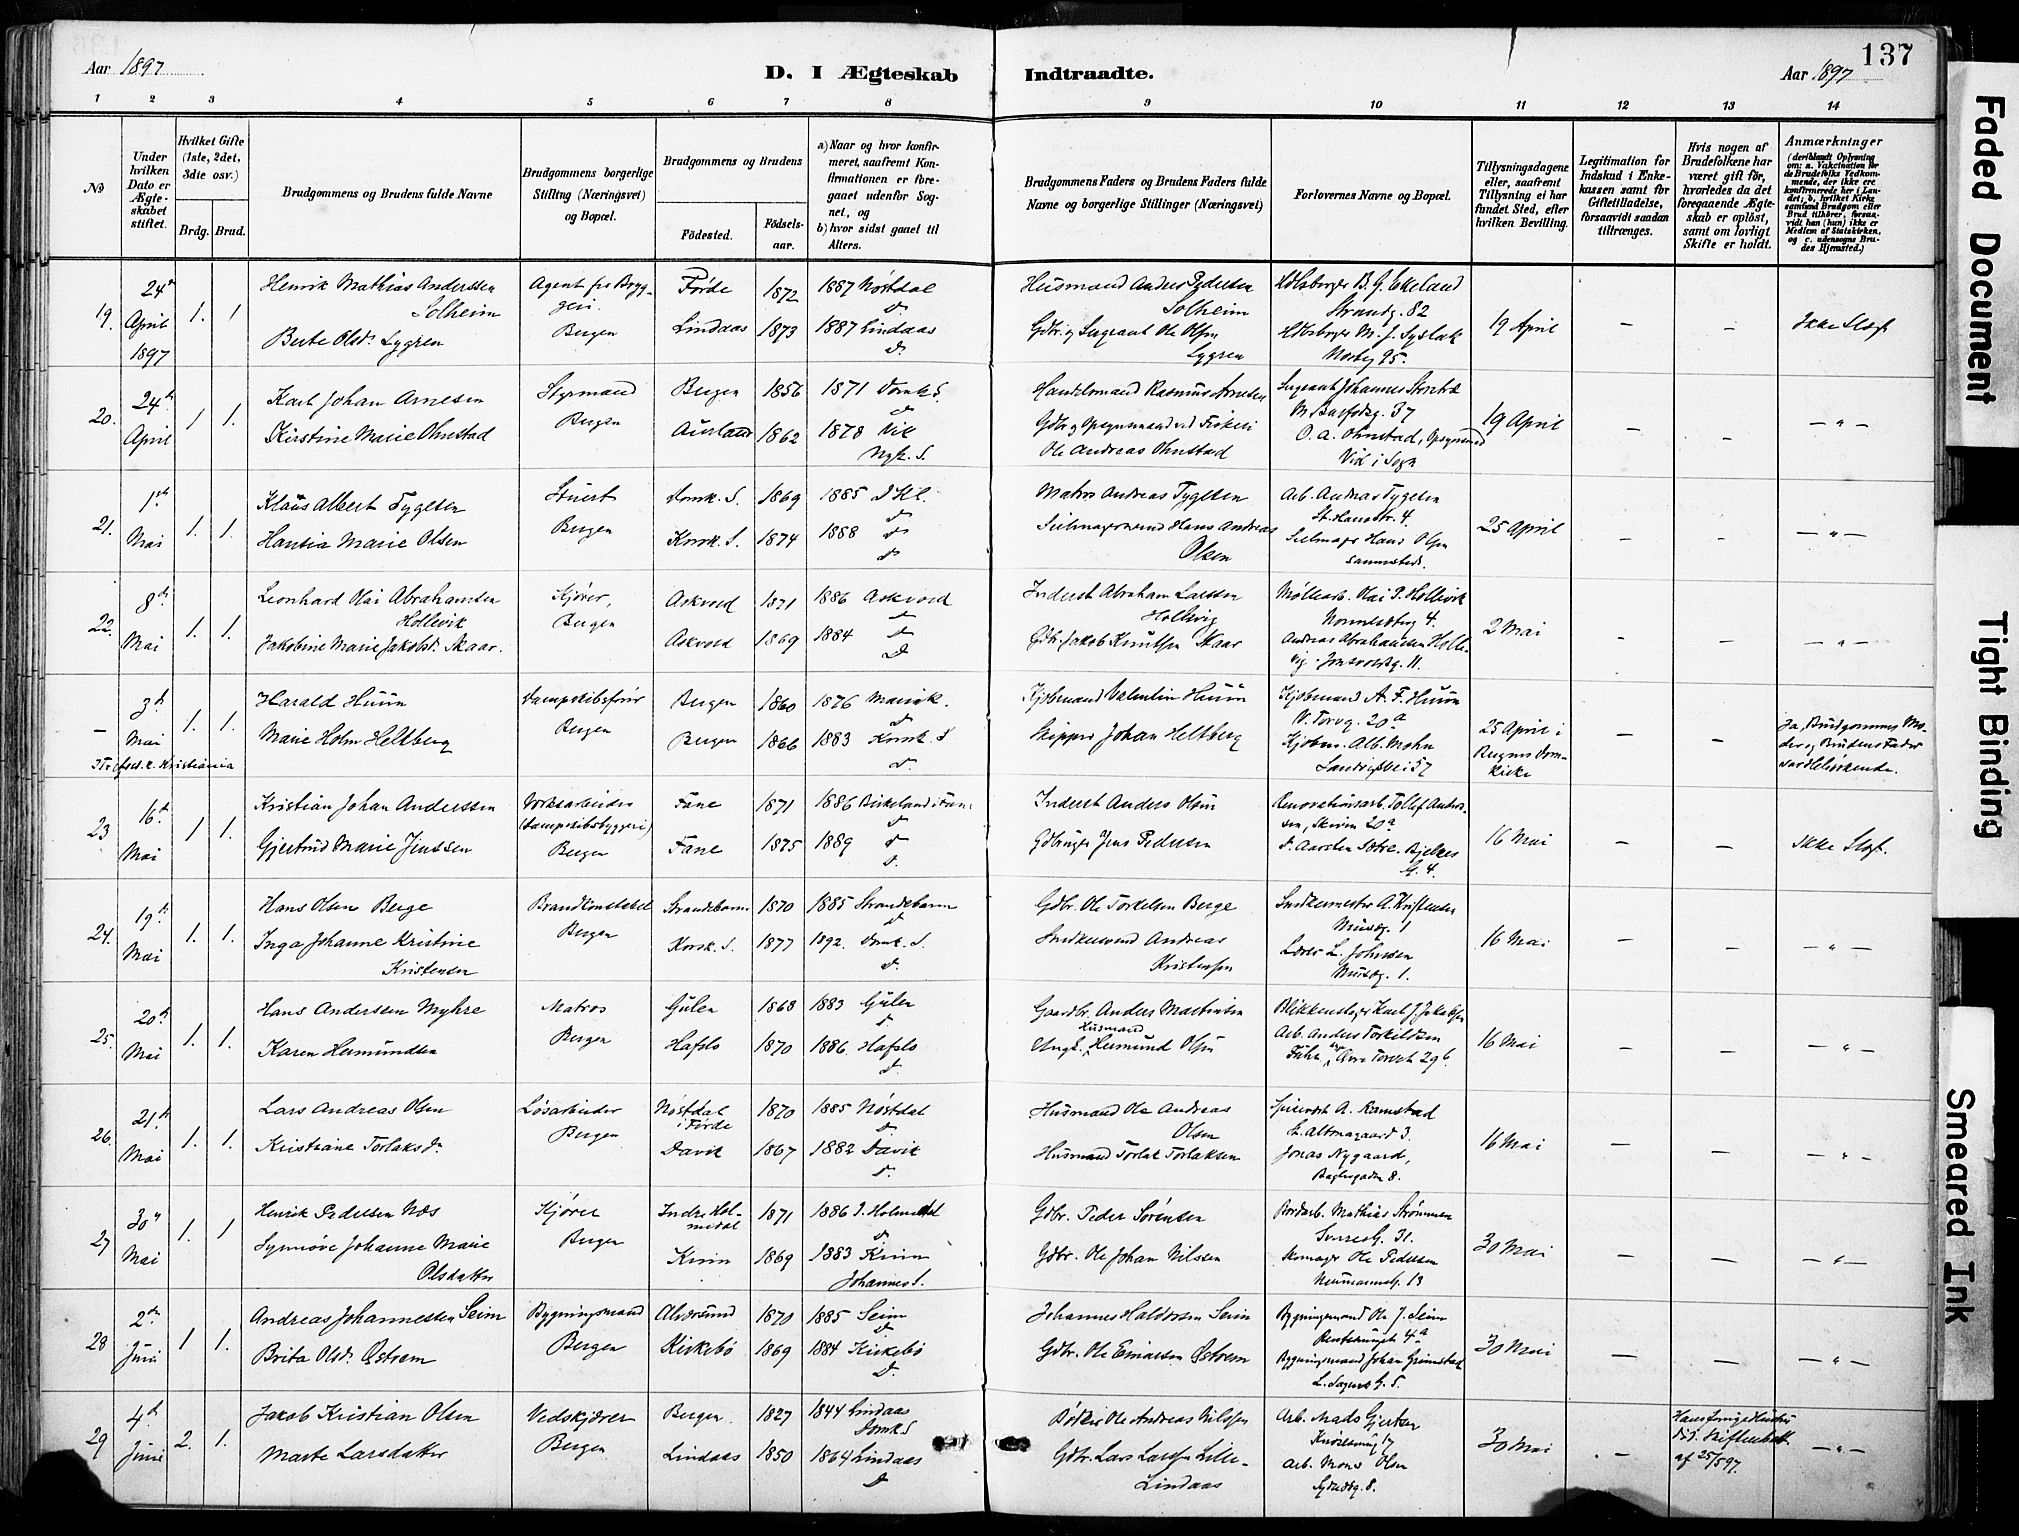 Aar 1897
D. I Ægteskab Indtraadte.
Aar 1897
137
1 2 3 4 5 6 7 8 9 10 11 12 13 14
No
Under hvilken Dato er Ægteskabet stiftet.
Hvilket Gifte (1ste, 2det, 3die osv.)
Brdg. Brud.
Brudgommens og Brudens fulde Navne
Brudgommens borgerlige Stilling (Næringsvei) og Bopæl.
Brudgommens og Brudens
Fødested.
Fødselsaar.
a) Naar og hvor konfirmeret, saafremt Konfirmationen er foregaaet udenfor Sognet, og
b) hvor sidst gaaet til Alters.
Brudgommens Faders og Brudens Faders fulde Navne og borgerlige Stillinger (Næringsvei)
Forlovernes Navne og Bopæl.
Tillysningsdagene eller, saafremt Tillysning ei har fundet Sted, efter hvilken Bevilling.
Legitimation for Indskud i Enkekassen samt for Giftetilladelse, forsaavidt saadan tiltrænges.
Hvis nogen af Brudefolkene har været gift før, hvorledes da det foregaaende Ægteskab er opløst, samt om lovligt Skifte er holdt.
Anmærkninger
(deriblandt Oplysning om: a. Vakcination for de Brudefolks Vedkommende, der ikke ere konfirmerede her i Landet; b. hvilket Kirkesamfund Brudgom eller Brud tilhører, forsaavidt han (hun) ikke er Medlem af Statskirken, og c. udensogns Brudes Hjemsted.)
19. 24de April 1897 1. 1
Henrik Mathias Anderssen Solheim
Agent for Bryggeri. Bergen
Førde 1872 1887 Nøstdal
Husmand Anders Pedersen Solheim
B. G. Ekeland
Strandg. 82
Berte Olsdr. Lygren
Lindaas 1873 1887 Lindaas d.
Gdbr. og Sergeant Ole Olsen Lygren
19 April — — Ikke Slægt
20. 24de April 1 1.
Karl Johan Arnesen
Styrmand Bergen
Bergen 1856 1871 Domk. S.
Handelsmand Rasmus Arnesen
Sergeant Johannes
37
Kirstine Marie Ohnstad
Aurland 1862 1878 Vik
Nyk. S.
Ole Andreas Ohnstad
O. A. Ohnstad, Opsynsmand
Vik i Sogn
19 April — — — " —
21. 1ste Mai 1. 1.
Klaus Albert Tygesen
Stuert Bergen
Domk. S. 1869 1885
Matros Andreas Tygesen
Arb. Andreas Tygesen
St. Hansstr. 4.
Hansia Marie Olsen
Korsk. S. 1874 1888 d
Seilmagersvend Hans Andreas Olsen
Seilmager Hans Olsen
sammesteds.
25 April — — — " —
22. 8de Mai 1. 1.
Leonhard Olai Abrahamsen Hollevik
Kjører, Bergen
Askvold 1871 1886 Askvold
Inderst Abraham Larssen Hollevig
Møllearb. Olai P. Hollevik
Jakobine Marie Jakobsdr. Skaar.
Askvold 1869 1884 d
Gdbr. Jakob Knutsen Skaar
Andreas Abrahamsen Hollevig
11.
2 Mai — — — " —
— 3die Mai 1. 1.
Harald Huun
Dampskibsfører Bergen
Bergen 1860 1876 Mariak.
Kjøbmand Valentin Huun
Kjøbmand A. F. Huun
V. Torvg. 20a
Marie Holm Heltberg
Bergen 1866 1883 Korsk. S
Skipper Johan Heltberg
Kjøbm. Alb. Mohn
57
Kristiania
25 April i Bergens Domkirke
— —
Ja, Brudgommens Moder og Brudens Fader
23 16de Mai 1 1.
Kristian Johan Anderssen
Verksarbeider (Dampskibsbyggeri) Bergen
Fane 1871 1886 Birkeland i Fane
Inderst Anders Olsen
Renovationsarb. Tollef Anderssen, Skiven 20a
Gjertrud Marie Jenssen
Fane 1875 1889 d
Gdbruger Jens Pedersen
G. 4.
16 Mai — — Ikke Slægt.
24. 19de Mai 1. 1.
Hans Olsen Berge
Brandkonstabel Bergen
Strandebarm 1870 1885 Strandebarm
Gdbr. Ole Torkelsen Berge
Snedkermester A. Kristensen
1
Inga Johanne Kristine Kristensen
Korsk. S. 1877 1892. Domk. S.
Snedkersvend Andreas Kristensen
Lærer L. Johnsen
1.
16 Mai — — — " —
25. 20de Mai 1. 1.
Hans Anderssen Myhre
Matros Bergen
Gulen 1868 1883 Gulen
Gaardbr. Anders Martinsen
Blikkenslager Karl J. Jakobsen
Karen Hermundsen
Hafslo 1870 1886. Hafslo
Husmand Hermund Olsen
Arb. Anders Torkildsen
Torvet 29b
16 Mai — — — " —
26. 21de Mai 1. 1.
Lars Andreas Olsen
Løsarbeider Bergen
Nøstdal i Førde 1870 1885 Nøstdal
Husmand Ole Andreas Olsen
A. Ramstad
L. Altmagaard 3.
Kristiane Torlaksdr
Davik 1867 1882 Davik
Husmand Torlak Torlaksen
Jonas Nygaard,
8.
16 Mai — — — " —
27 30te Mai 1. 1
Henrik Pedersen Næs
Kjører Bergen
Indre Holmedal 1871 1886 I. Holmedal
Gdbr. Peder Sørensen
Bordarb. Mathias Strømmen
Sverresg. 31.
Synnøve Johanne Marie Olsdatter
Kinn 1869 1883 Kinn
Johannes S.
Gdbr. Ole Johan Nilssen
Skomager Ole Pedersen
Neumannsg. 13
30 Mai — — — " —
28 2den Juni 1 1.
Andreas Johannessen Seim
Bygningsmand Bergen
Alversund 1870 1885 Seim
Johannes Haldorsen Seim
Bygningsmand Ole J. Seim
4a
Brita Olsdr. Østrem
Kirkebø 1869 1884 Kirkebø
Gdbr. Ole Einarsen Østrem
Bygningsmand Johan Grimstad
L. Sagens G. 5.
30 Mai — — — " —
29 4de Juni 2. 1.
Jakob Kristian Olsen
Vedskjærer Bergen
Bergen 1827 1844 Lindaas
Domk. S
Bødker Ole Andreas Nilssen
Arb. Mads Gjertsen
17
Marte Larsdatter
Lindaas 1850 1864 Lindaas d
Gdbr. Lars Larssen Lille-Lindaas
Arb. Mons Olsen
8.
30 Mai —
af 25/5 97.
— " —
Faded Document
Tight Binding
Smeared Ink